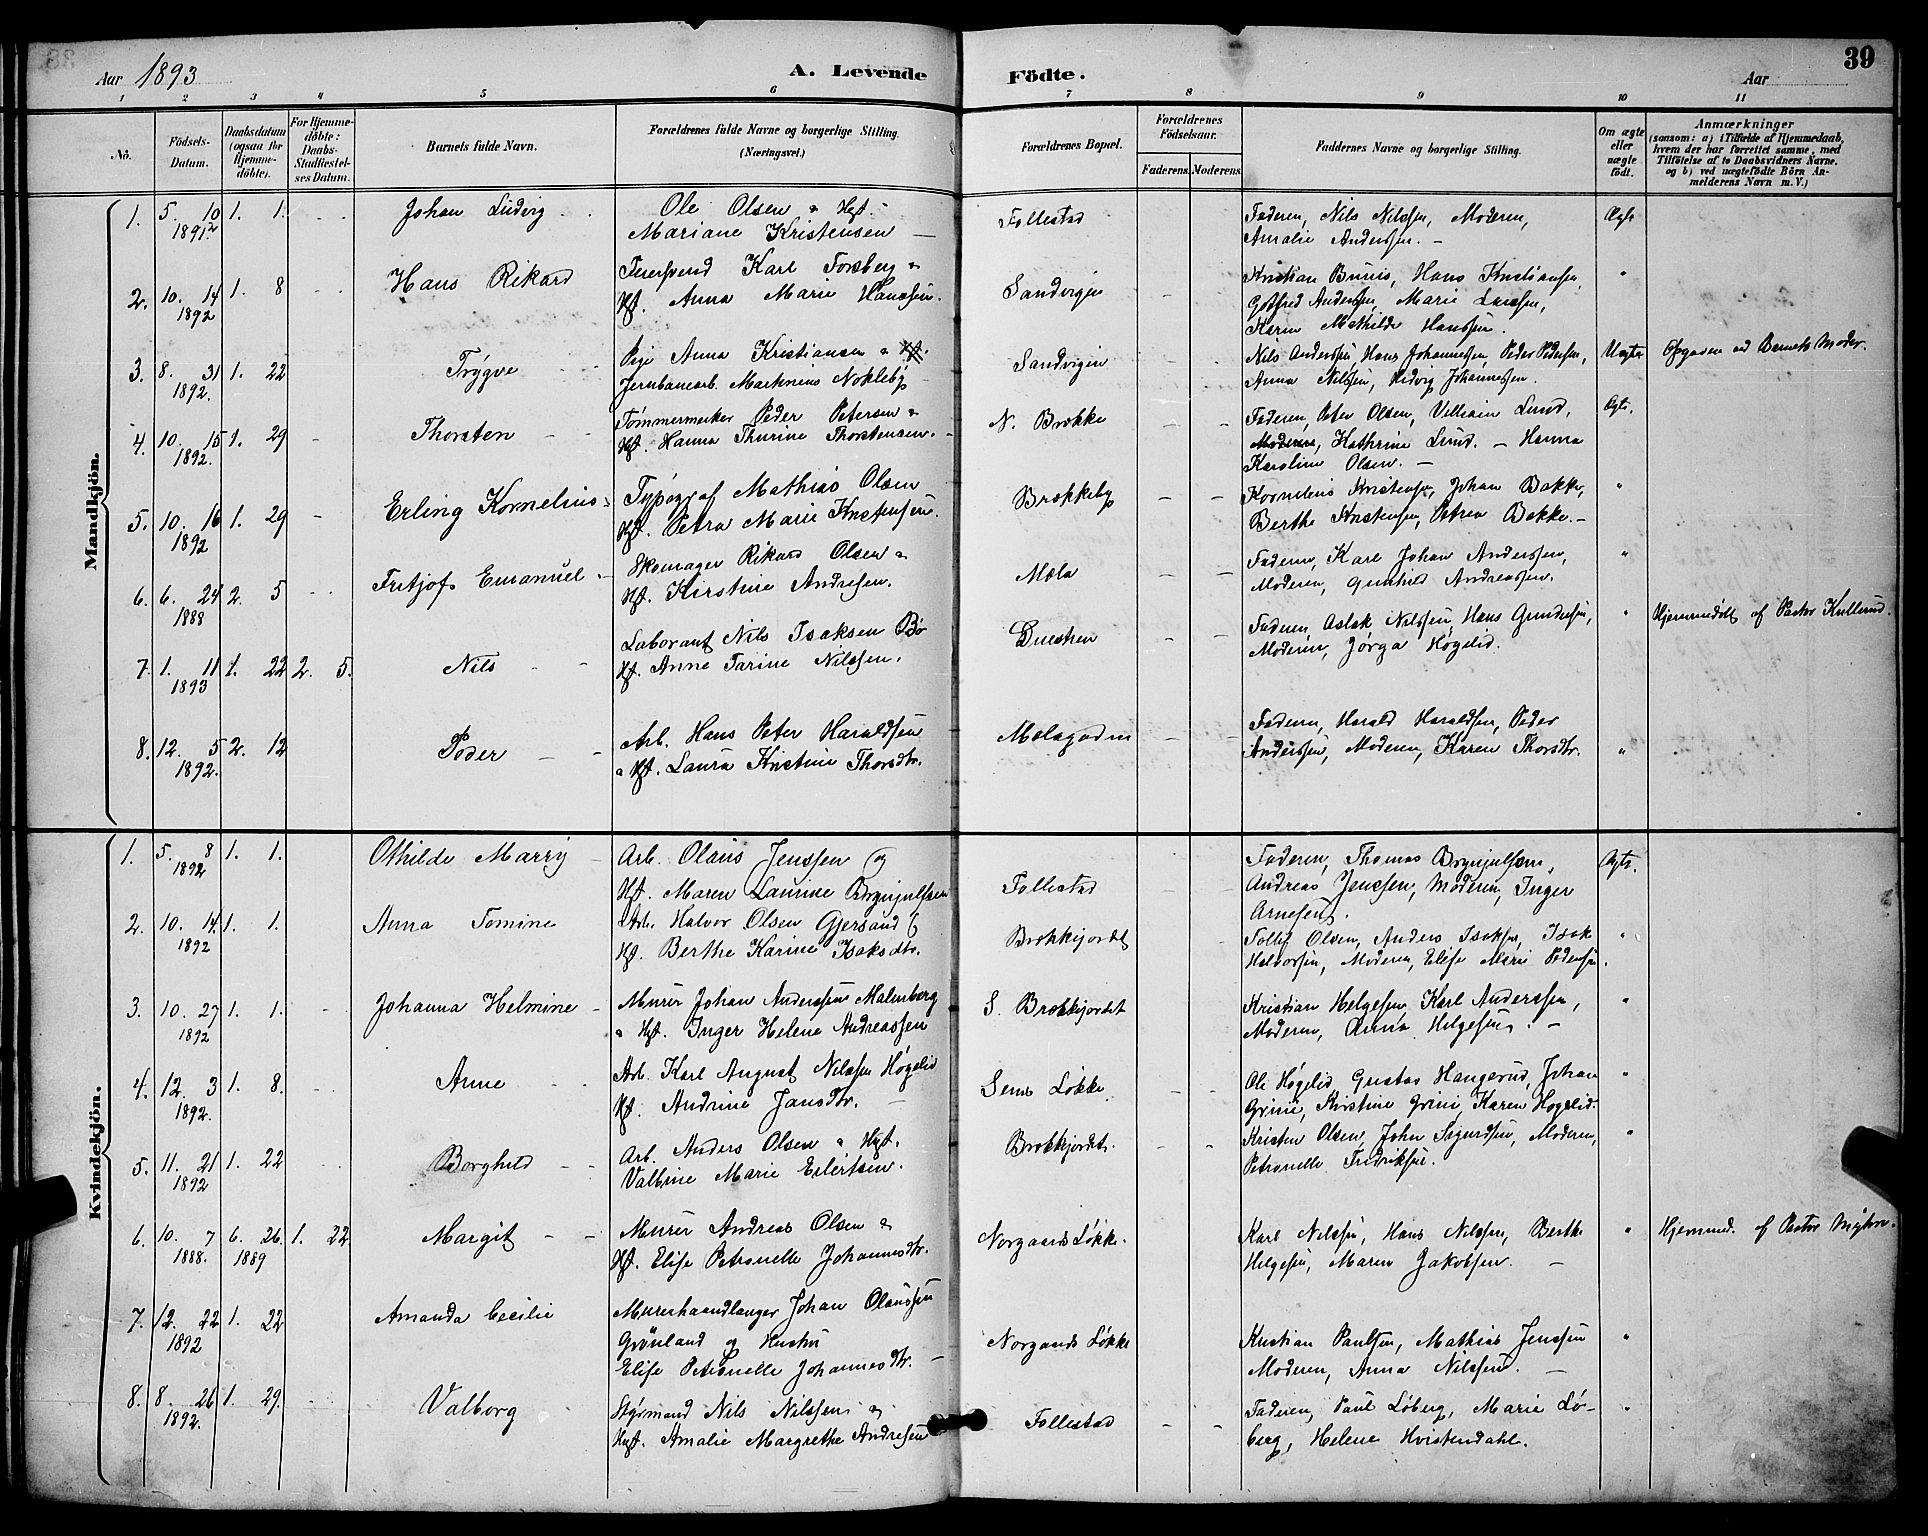 39
Aar 1893
A. Levende
Födte.
Aar
1 2 3 4 5 6 7 8 9 10 11
No.
Födsels-
Datum.
Daabsdatum
(ogsaa for
Hjemme-
döbte).
For Hjemme-
döbte:
Daabs-
Stadfæstel-
ses Datum.
Barnets fulde Navn.
Forældrenes fulde Navne og borgerlige Stilling.
(Næringsvei.)
Forældrenes Bopæl.
Forældrenes
Födselsaar.
Faderens. Moderens.
Faddernes Navne og borgerlige Stilling.
Om ægte
eller
uægte
födt.
Anmærkninger
(saasom: a) i Tilfælde af Hjemmedaab,
hvem der har forrettet samme, med
Tilföielse af to Daabsvidners Navne,
og b) ved uægtefödte Börn An-
melderens Navn m. V.)
Mandkjön.
1. 5. 10 1891 1. 1. Johan Ludvig
Ole Olsen & Hgf.
Mariane Kristensen
Follestad
Faderen, Nils Nilssen, Moderen,
Amalie Anderssen.
Ægte
2. 10. 14 1892 1. 8 Hans Rikard
Karl Forsberg &
Hf. Anna Marie Hanssen.
Sandvigen
Kristian Bruus, Hans Kristiansen
Gotfred Andersen, Marie Larssen,
Karen Mathilde Hanssen.
"
3. 8. 31 1892. 1. 22 Trygve
Pige Anna Kristiansen &
Jernbanearb. Marthnius Nokleby
Sandvigen
Nils Anderssen, Hans Johannessen, Peder Pedersen,
Anna Nilssen, Hedvig Johannessen.
Uægte
Opgaven ved Barnets Moder.
4. 10. 15 1892. 1. 29 Thorsten
Tømmermerker Peder Petersen &
Hf. Hanna Thurine Thorstensen.
N. Brække
Faderen, Peter Olsen, Villiam Lund,
Moderen, Kathrine Lund. Hanna
Karoline Olsen.
Ægte.
5. 10. 16 1892 1. 29 Erling Kornelius
Typograf Mathias Olsen
Hgf. Petra Marie Kristensen.
Brækkeby
Kornelius Kristensen, Johan Bakke,
Berthe Kristensen, Petrea Bakke.
"
6. 6. 24 1888 2. 5 Fritjof Emanuel
Skomager Rikard Olsen &
Hf. Kirstine Andresen.
Mæla
Faderen, Karl Johan Anderssen,
Moderen, Gunhild Andreassen.
"
7. 1. 11 1893 1. 22 2. 5. Nils
Laborant Nils Isaksen Bø
Hf. Anne Tarine Nilssen.
Faderen, Aslak Nilssen, Hans Gundersen,
Moderen, Jørga Høgelid.
"
Hjemmedøbt af Pastor Kullerud.
8. 12. 5 1892. 2. 12 Peder
Arb. Hans Peter Haraldsen
& Hf. Laura Kristine Thorsdtr.
Mælagaden
Faderen, Harald Haraldsen, Peder
Anderssen, Moderen, Karen Thorsdtr.
"
Kvindekjön.
1. 5. 8 1892 1. 1. Othilde Marry
Arb. Olaus Jenssen og
Hf. Maren Laurine Brynjulfsen
Follestad
Faderen, Thomas Brynjulfsen,
Andreas Jenssen, Moderen, Inger
Arnesen.
Ægte.
2. 10. 14. 1892 1. 1. Anna Tomine
Arb. Halvor Olsen Gjersund &
Hf. Berthe Karine Isaksdtr.
Brækkejordet
Tollef Olsen, Anders Isaksen, Isak
Halvorsen, Moderen, Elise Marie Pedersen.
"
3. 10. 27 1892 1. 1. Johanna Helmine
Murer Johan Anderssen Malmberg
& Hgf. Inger Helene Andreassen
S. Brækkejordet
Kristian Helgesen, Karl Anderssen,
Moderen, Anna Helgesen.
"
4. 12. 3 1892. 1. 8. Anne
Arb. Karl August Nilssen Høgelid
Hf. Andrine Jansdtr.
Sems Løkke
Ole Høgelid, Gustav Haugerud, Johan
Grini, Kirstine Grini, Karen Høgelid.
"
5. 11. 21 1892 1. 22 Borghild
Arb. Anders Olsen & Hgf.
Valbine Marie Eilertsen.
Brækkejordet.
Kristen Olsen, John Sigurdsen, Moderen,
Petronelle Fredriksen.
"
6. 10. 7 1888. 6. 26. 1889 1. 22 Margit
Murer Andreas Olsen &
Hf. Elise Petronelle Johannesdtr.
Norgaards Løkke.
Karl Nilssen, Hans Nilssen, Berthe
Helgesen, Maren Jakobsen.
"
Hjemmed. af Pastor
7. 12. 22 1892 1. 22 Amanda Cecilie
Murerhaandlanger Johan Olaussen
Grönland og Hustru
Elise Petronelle Johannesdtr.
Norgaards Løkke
Kristian Paulsen, Mathias Jenssen
Moderen, Anna Nilssen.
"
8. 8. 26 1892. 1. 29. Valborg
Styrmand Nils Nilssen &
Hgf. Amalie Margrethe Andresen
Follestad
Faderen, Paul Løberg, Marie Lø-
berg, Helene Hvistendahl.
"